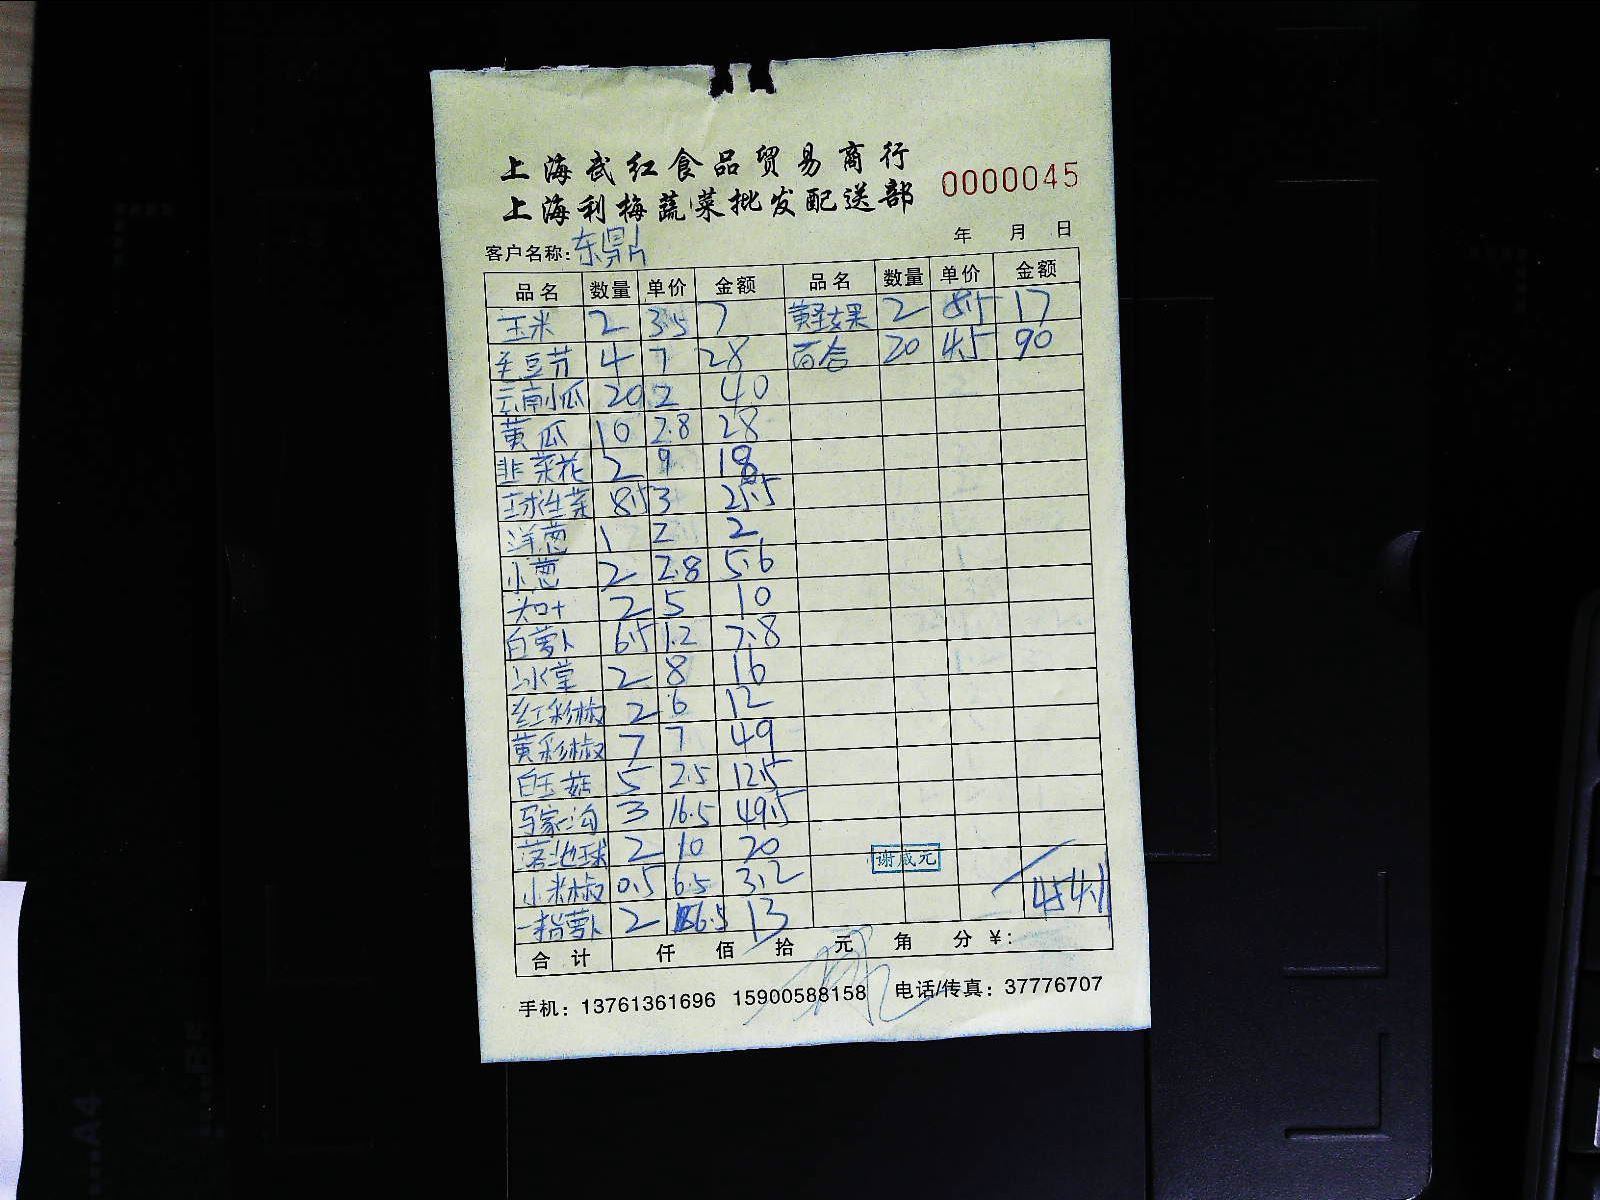 上海武红食品贸易商行
上海利梅蔬菜批发配送部 0000045
客户名称:东鼎 年 月 日
品名 数量 单价 金额 品名 数量 单价 金额
玉米 2 3.5 7 黄圣女果 2 8.5 17
毛豆节 4 7 28 百合 20 4.5 90
云南小瓜 20 2 40
黄瓜 10 2.8 28
韭菜花 2 9 18
球生菜 8.5 3 25.5
洋葱 1 2 2
小葱 2 2.8 5.6
2 5 10
白萝卜 6.5 1.2 7.8
冰草 2 8 16
红彩椒 2 6 12
黄彩椒 7 7 49
白玉菇 5 2.5 12.5
马家沟 3 16.5 49.5
落地球 2 10 20
小米椒 0.5 6.5 3.2
一指萝卜 2 6.5 13
谢成元
454.1
合计 仟 佰 拾 元 角 分 ¥:
手机: 13761361696 15900588158 电话/传真: 37776707
A4
B5